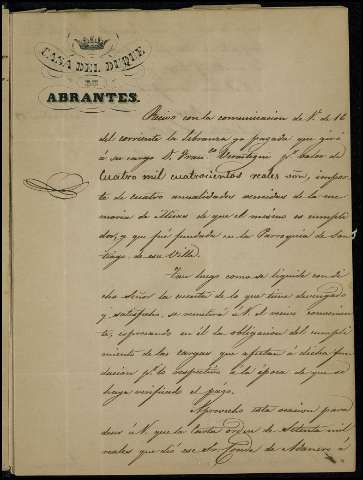 CASA DEL DUQUE
DE
ABRANTES.
Recivo con la comunicacion de V. de 16
del corriente la libranza ya pagada que giró
á su cargo D. Fran.co Verastegui p.r valor de
Cuatro mil cuatrocientos reales vn, impor-
te de cuatro anualidades vencidas de la me-
moria de Misas de que el mismo es cumpli-
dor, y que fué fundada en la Parroquia de San-
tiago de esa Villa.
Tan luego como se liquide con di-
cho Señor la cuenta de lo que tiene devengado
y satisfecho, se remitirá á V. el recivo convenien-
te, espresando en él la obligacion del cumpli-
miento de las cargas que afectan á dicha fun-
dacion p.r lo respectivo á la época de que se
haya verificado el pago.
Aprovecho esta ocasion para
decir á V. que la Carta órden de Setenta mil
reales que dió ese Sr. Conde de Adanero á